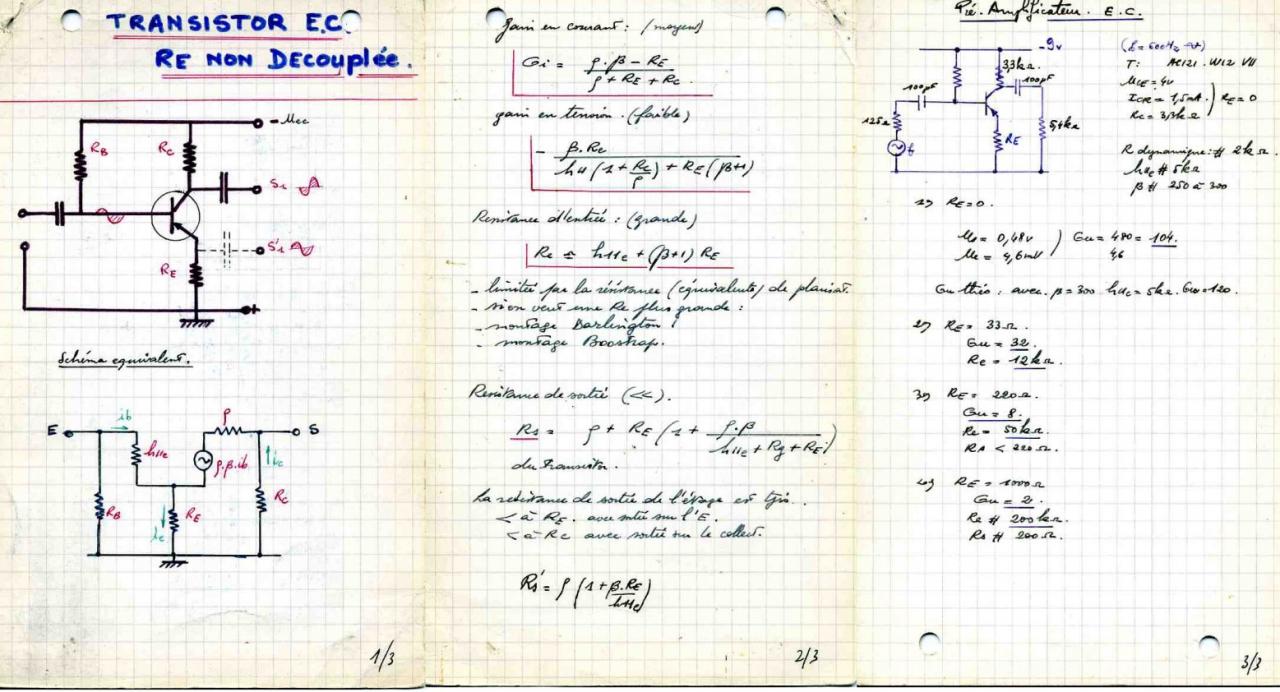 TRANSISTOR E.C.
RE NON DECOUPLée.
- Ucc
RB
RC
S1
S'1
RE
+
Schéma equivalent.
E
ib
h11e
ρ
S
ρ.β.ib
ic
RB
RE
RC
ic
1/3
gain en courant : (moyen)
Gi = ρ.β – RE / ρ + RE + Rc
gain en tension . (faible)
- β.Rc / h11 (1+ Rc/ρ) + RE (β+1)
Resistance d'entrée : (grande)
Re ≃ h11e + (β+1) RE
- limitée par la résistance (équivalente) de polarisat.
- si on veut une Re plus grande :
- montage Darlington !
- montage Boostrap.
Resistance de sortie (<<).
Rs = ρ + RE (1 + ρ.β / h11e + Rg + RE)
du transistor.
La resistance de sortie de l'étage est tjrs.
< à RE. avec sortie sur l'E.
< à Rc avec sortie sur le collect.
Rs' = ρ (1+ β.RE / h11e)
2/3
Pré. Amplificateur. E.C.
-9v
3,3kΩ
100µF
100µF
125Ω
RE
5,4kΩ
T: AC121 . W12 VII
UCE = 4v
Rc = 3,3kΩ
RE = 0
R dynamique : # 2kΩ.
h11e # 5kΩ
β # 250 à 300
1) RE = 0.
Us = 0,48v
Ue = 4,6mV
Gu = 480 / 4,6 = 104.
Gu théo : avec. β = 300 h11e = 5kΩ. Gu = 120.
2) RE = 33Ω.
Gu = 32.
Re = 12kΩ.
3) RE = 220Ω.
Gu = 8.
Re = 50kΩ.
Rs < 220Ω.
4) RE = 1000Ω
Gu = 2.
Re # 200kΩ.
Rs # 200Ω.
3/3